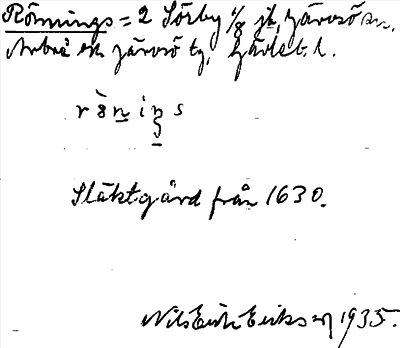 Rönnings = 2 Sörby 1/8 jb, Järvsö sn,
Arbrå o Järvsö tg, Gävleb. l.
rö̀niŋs
Släktgård från 1630.
Nils Erik Eriksson 1935.